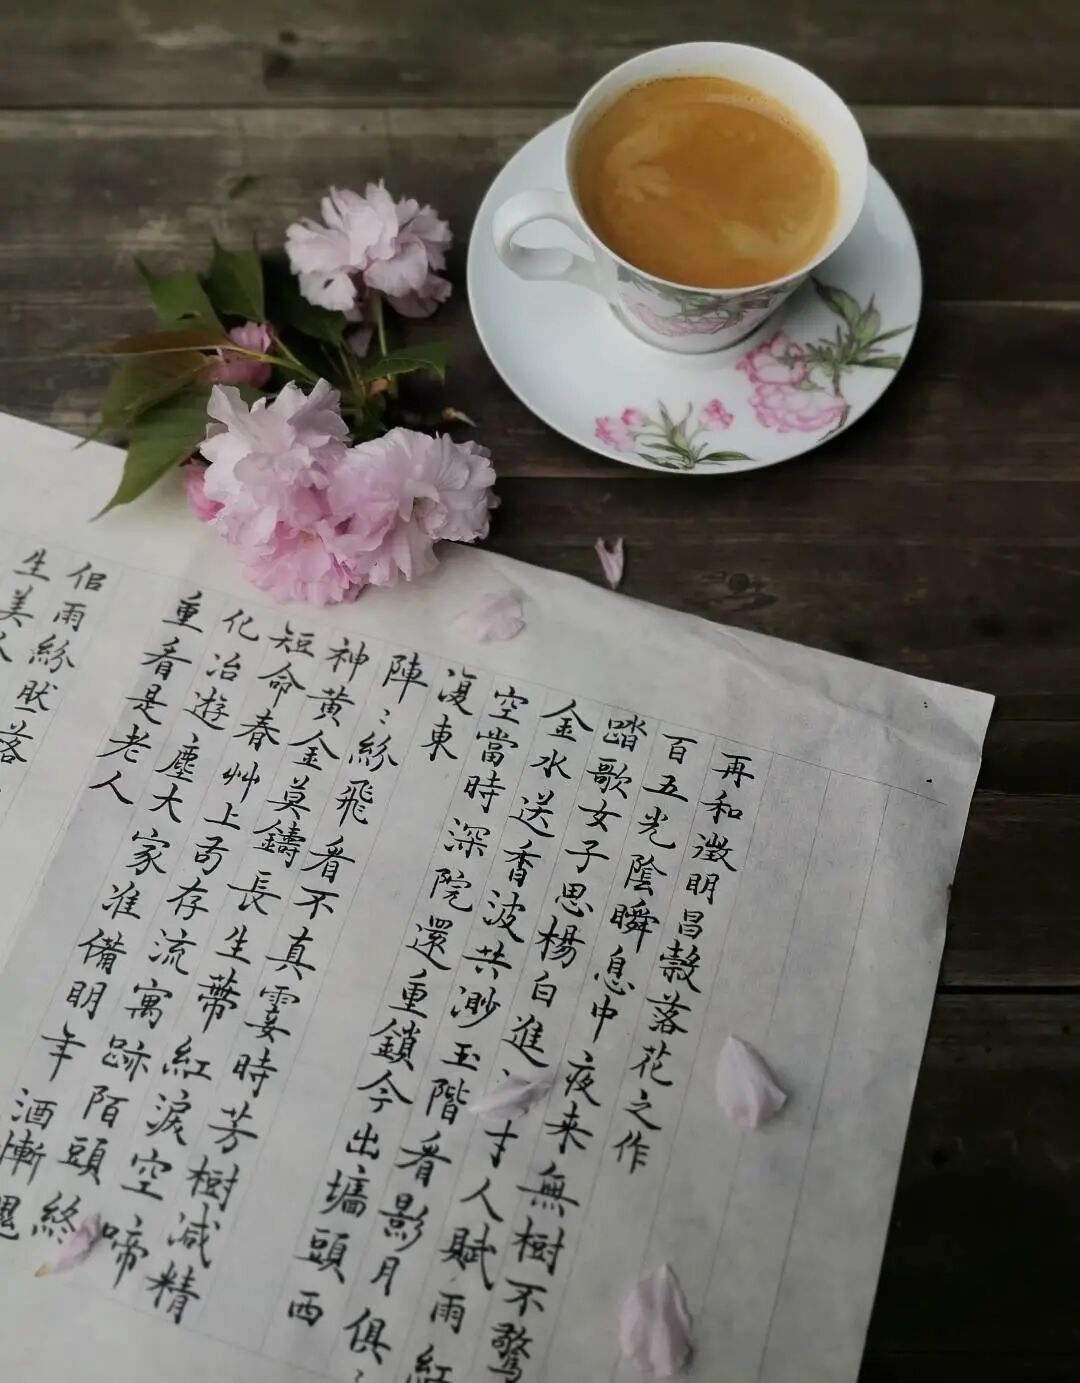 再和徵明昌穀落花之作
百五光陰瞬息中夜来無樹不驚
踏歌女子思楊白進才人賦雨紅
金水送香波共渺玉階看影月俱
空當時深院還重鎖今出墻頭西
復東
陣〻紛飛看不真霎時芳樹減精
神黃金莫鑄長生蒂紅淚空啼
短命春艸上苟存流寓跡陌頭終
化冶遊塵大家准備明年酒慚愧
重看是老人
佀雨紛然落
生美人